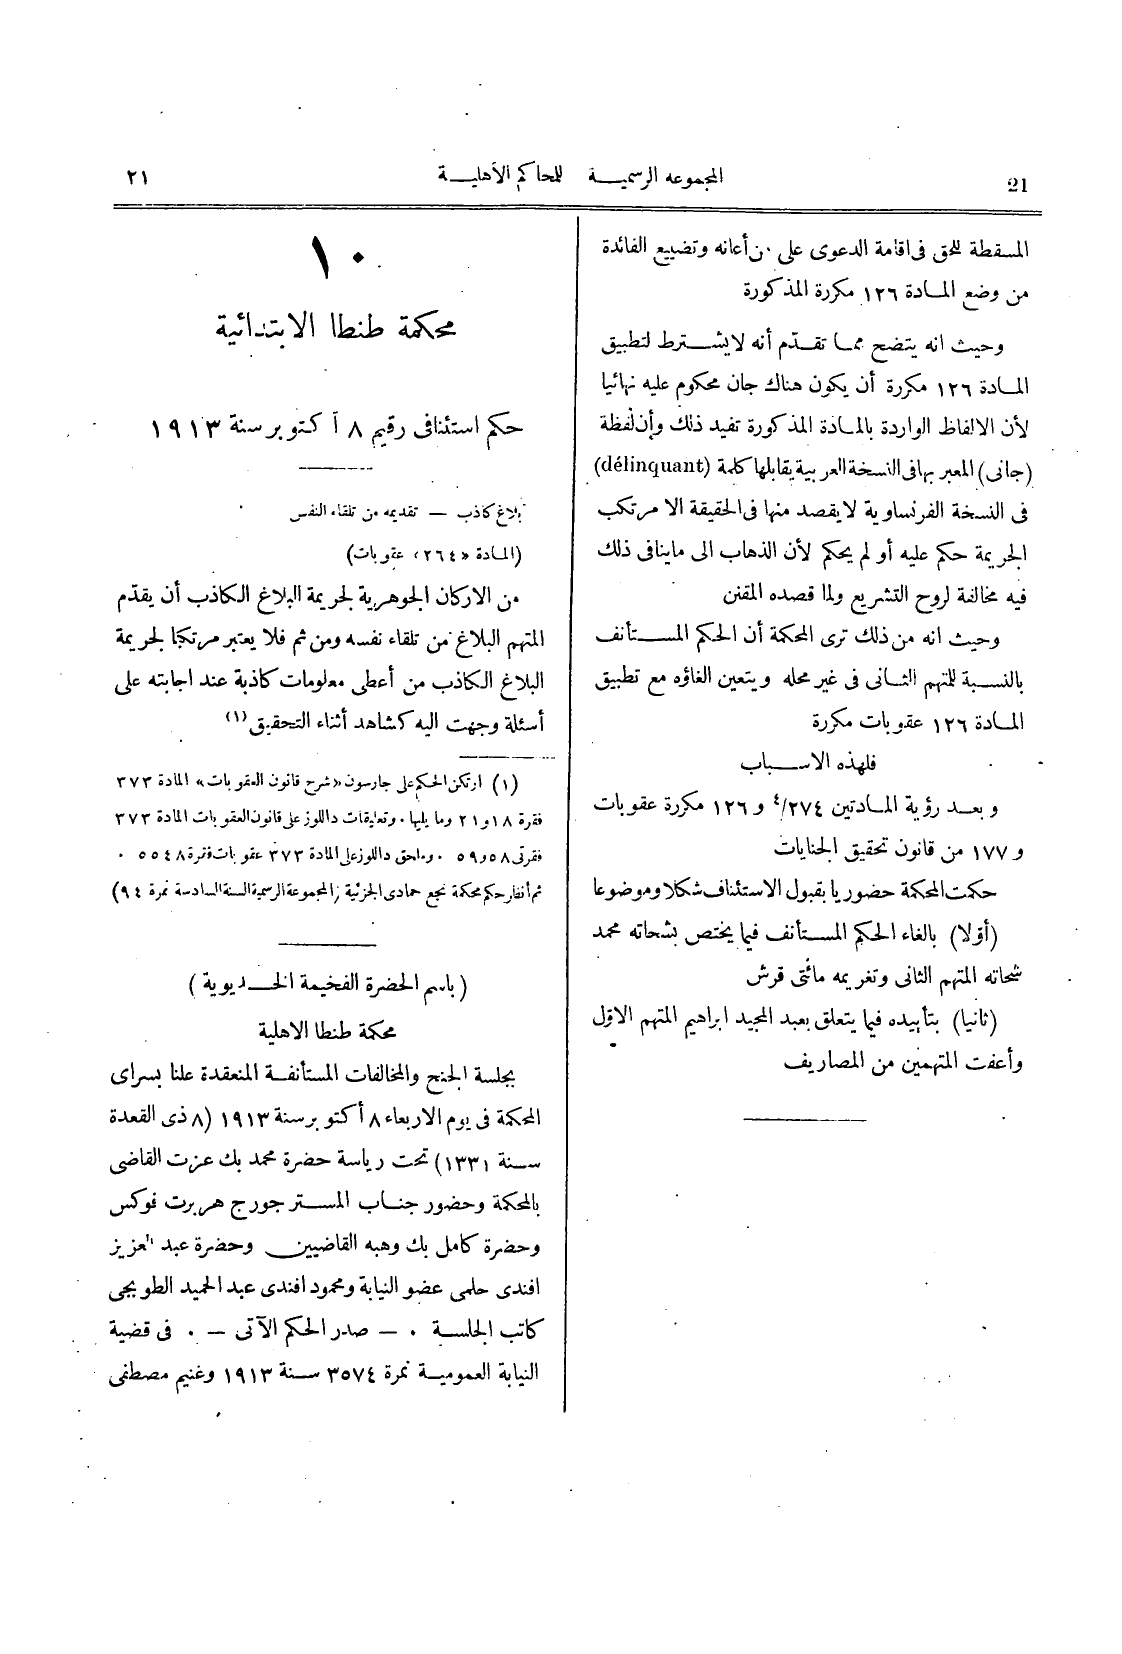 21 المجموعه الرسمية للمحاكم الأهلية ٢١
المسقطة للحق فى اقامة الدعوى على من أعانه وتضييع الفائدة
من وضع المادة ١٢٦ مكررة المذكورة
وحيث انه يتضح مما تقدّم أنه لا يشترط لتطبيق
المادة ١٢٦ مكررة أن يكون هناك جان محكوم عليه نهائيا
لأن الالفاظ الواردة بالمادة المذكورة تفيد ذلك وأن لفظة
(جانى) المعبر بها فى النسخة العربية يقابلها كلمة (délinquant)
فى النسخة الفرنساوية لا يقصد منها فى الحقيقة الا مرتكب
الجريمة حكم عليه أو لم يحكم لأن الذهاب الى ما ينافى ذلك
فيه مخالفة لروح التشريع ولما قصده المقنن
وحيث انه من ذلك ترى المحكمة أن الحكم المستأنف
بالنسبة للمتهم الثانى فى غير محله ويتعين الغاؤه مع تطبيق
المادة ١٢٦ عقوبات مكررة
فلهذه الاسباب
وبعد رؤية المادتين ٢٧٤/٤ و ١٢٦ مكررة عقوبات
و ١٧٧ من قانون تحقيق الجنايات
حكمت المحكمة حضوريا بقبول الاستئناف شكلا وموضوعا
(أوّلا) بالغاء الحكم المستأنف فيما يختص بشحاته محمد
شحاته المتهم الثانى وتغريمه مائتى قرش
(ثانيا) بتأييده فيما يتعلق بعبد المجيد ابراهيم المتهم الاوّل
وأعفت المتهمين من المصاريف
١٠
محكمة طنطا الابتدائية
حكم استئنافى رقيم ٨ أكتوبر سنة ١٩١٣
بلاغ كاذب — تقديمه من تلقاء النفس
(المادة «٢٦٤» عقوبات)
من الاركان الجوهرية لجريمة البلاغ الكاذب أن يقدّم
المتهم البلاغ من تلقاء نفسه ومن ثم فلا يعتبر مرتكبا لجريمة
البلاغ الكاذب من أعطى معلومات كاذبة عند اجابته على
أسئلة وجهت اليه كشاهد أثناء التحقيق (١)
(١) ارتكن الحكم على جارسون «شرح قانون العقوبات» المادة ٣٧٣
فقرة ١٨ و ٢١ وما يليها . وتعليقات داللوز على قانون العقوبات المادة ٣٧٣
فقرتى ٥٨ و ٥٩ . وملحق داللوز على المادة ٣٧٣ عقوبات فقرة ٥٥٤٨ .
ثم أنظر حكم محكمة نجع حمادى الجزئية (المجموعة الرسمية السنة السادسة نمرة ٩٤)
( باسم الحضرة الفخيمة الخديوية )
محكمة طنطا الاهلية
بجلسة الجنح والمخالفات المستأنفة المنعقدة علنا بسراى
المحكمة فى يوم الاربعاء ٨ أكتوبر سنة ١٩١٣ (٨ ذى القعدة
سنة ١٣٣١) تحت رياسة حضرة محمد بك عزت القاضى
بالمحكمة وحضور جناب المستر جورج هربرت فوكس
وحضرة كامل بك وهبه القاضيين وحضرة عبد العزيز
افندى حلمى عضو النيابة ومحمود افندى عبد الحميد الطوبجى
كاتب الجلسة . — صدر الحكم الآتى — . فى قضية
النيابة العمومية نمرة ٣٥٧٤ سنة ١٩١٣ وغنيم مصطفى